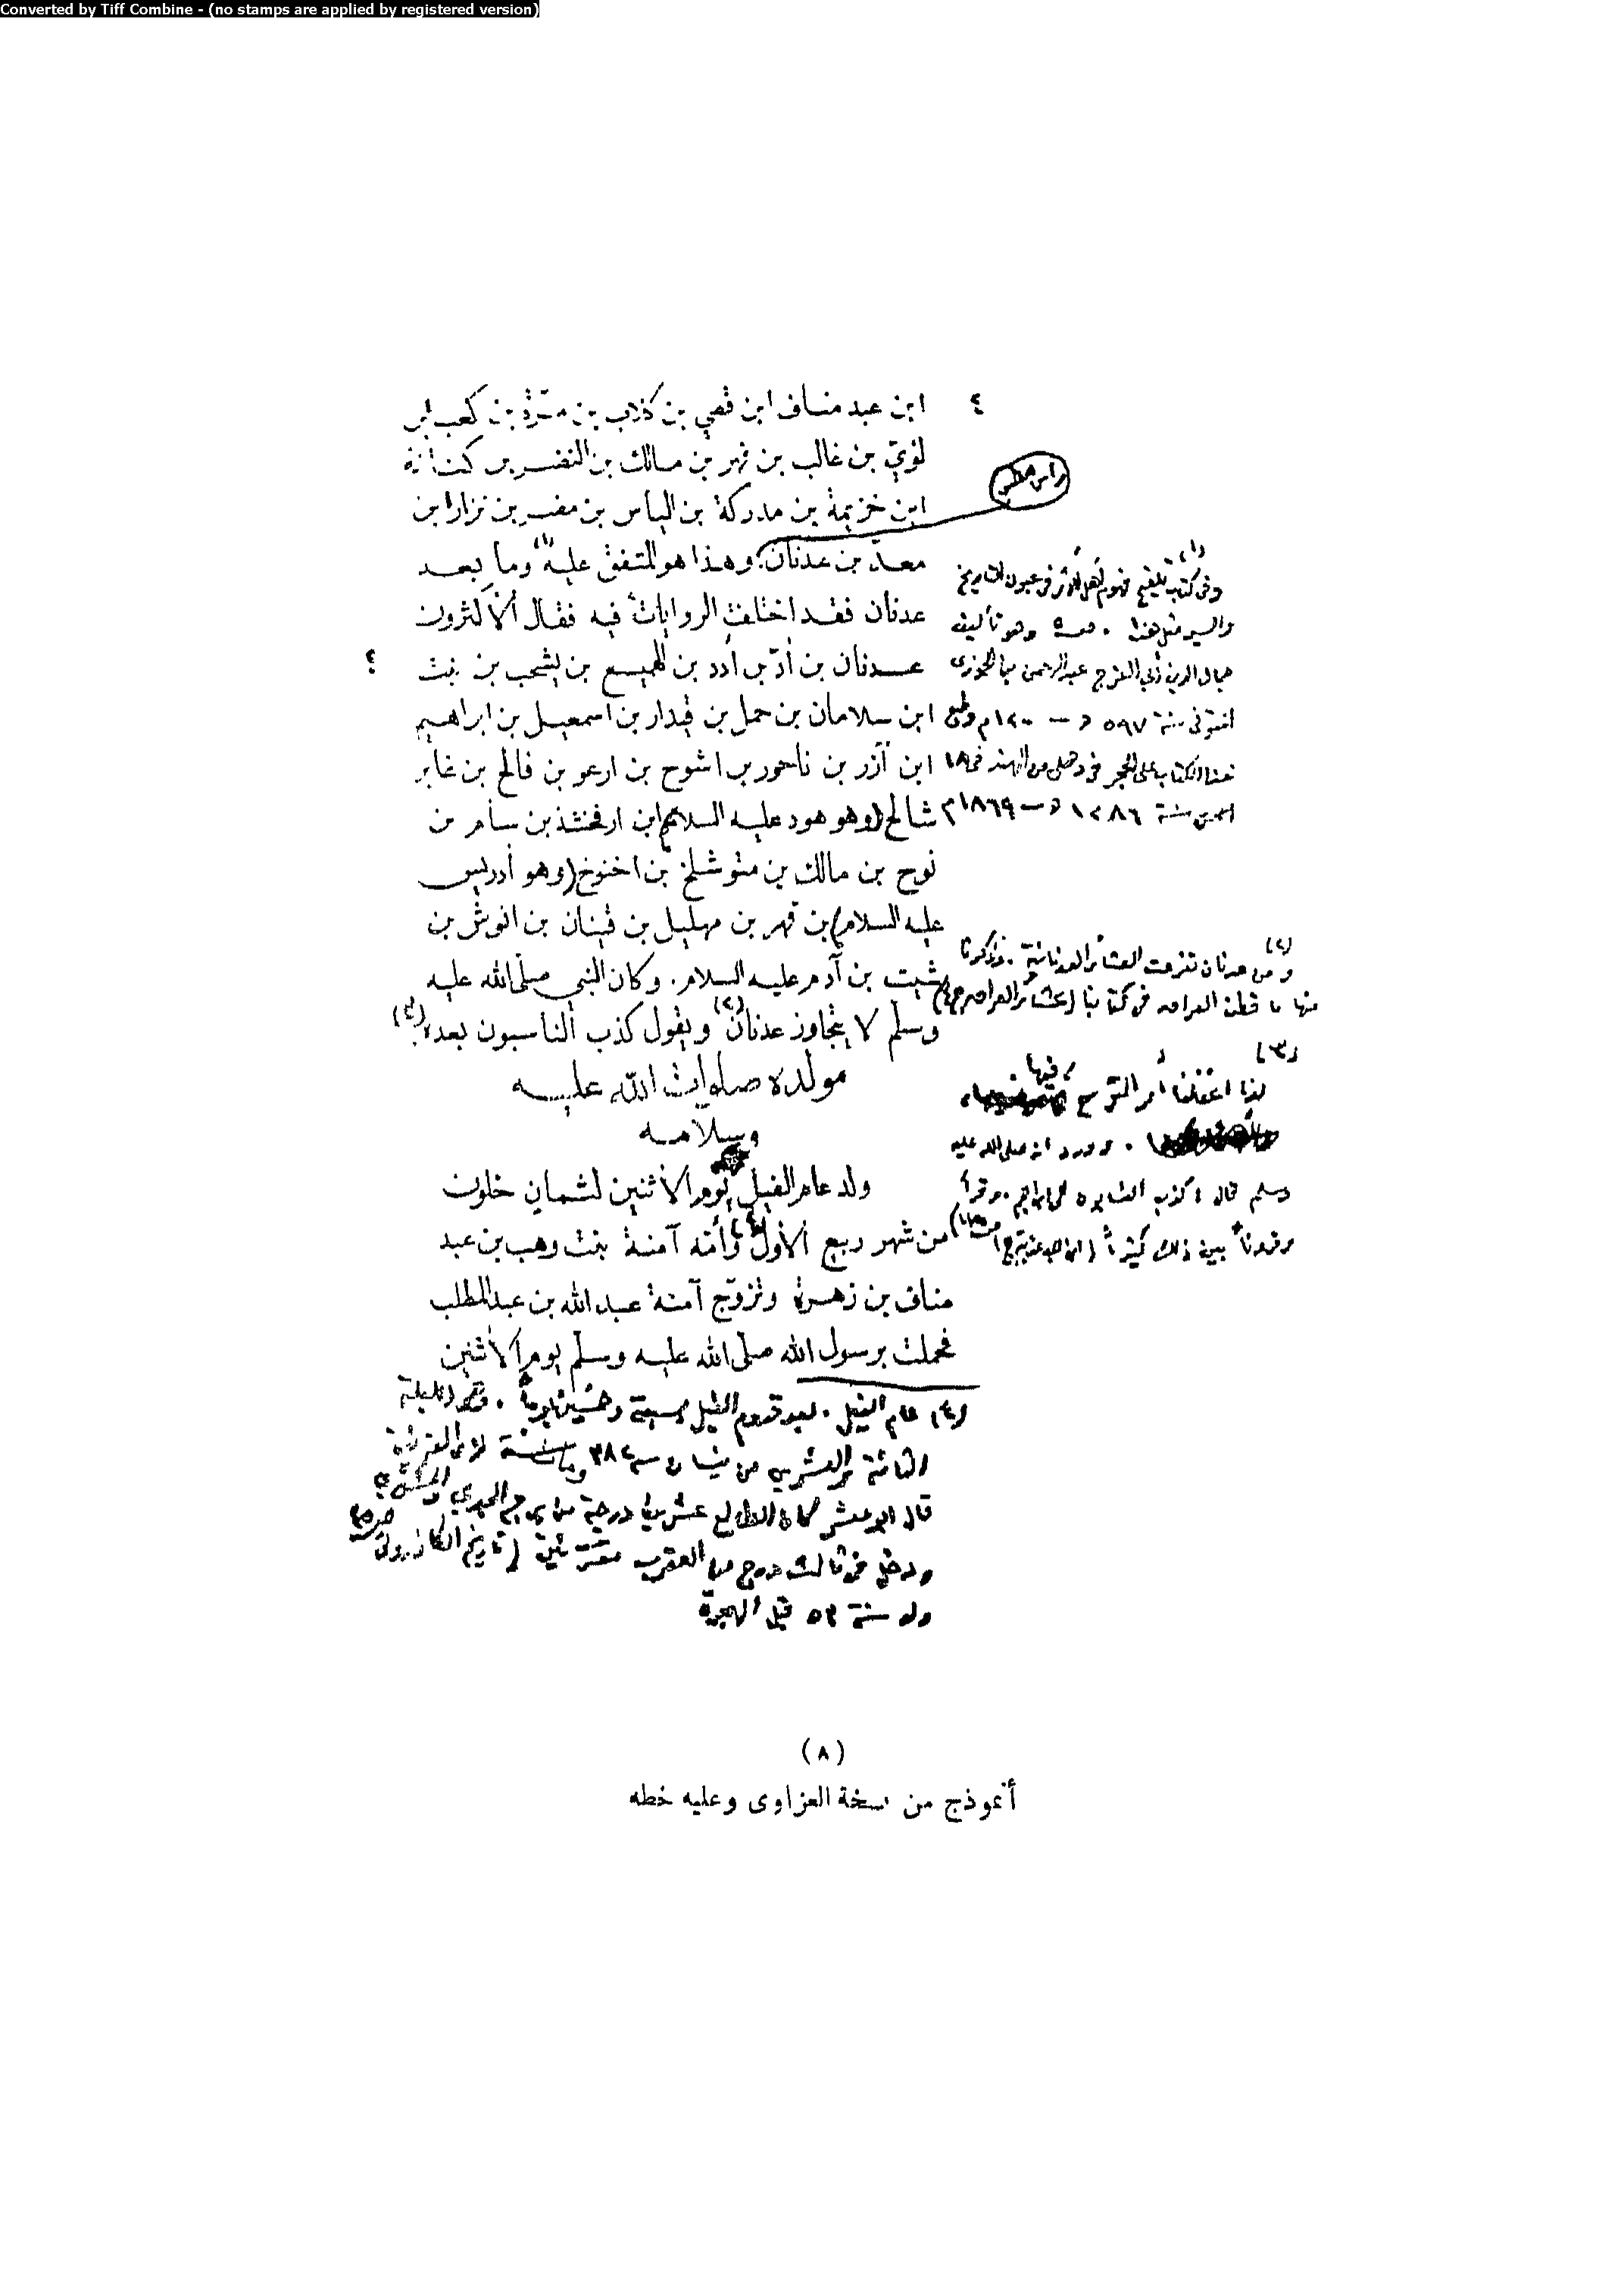 Converted by Tiff Combine - (no stamps are applied by registered version)
٤
ابن عبد مناف ابن قصي بن كلاب بن مرّة بن كعب ابن
لؤيّ بن غالب بن فهر بن مالك بن النضر بن كنانة
ابن خزيمة بن مدركة بن الياس بن مضر بن نزار ابن
معدّ بن عدنان. وهذا هو المتفق عليه (١) وما بعد
عدنان فقد اختلفت الروايات فيه فقال الأكثرون
عدنان بن أدّ بن أدد بن الهميسع بن يشحب بن نبت
؟
ابن سلامان بن حمل بن قيدار بن اسمعيل بن ابراهيم
ابن آزر بن ناحور بن اشوح بن ارعو بن فالح بن غابر
شالح (وهو هود عليه السلام) ابن ارفخشذ بن سام بن
نوح بن مالك بن متوشلخ بن اخنوخ (وهو أدريس
عليه السلام) بن قهر بن مهليل بن قينان بن انوش بن
شيت بن آدم عليه السلام. وكان النبي صلى الله عليه
وسلّم لا يتجاوز عدنان (٢) ويقول كذب الناسبون بعده (٣)
مولده صلوات الله عليه
وسلامه
ولد عام الفيل يوم الأثنين لثمان خلون
من شهر ربيع الأول (٤) وأمّه آمنة بنت وهب بن عبد
مناف بن زهرة وتزوّج آمنة عبد الله بن عبد المطلب
فحملت برسول الله صلى الله عليه وسلّم يوم الأثنين
(١)
وفي كتاب تلقيح فهوم أهل الأثر في عيون التاريخ
والسير مثل هذا . وهو تأليف
جمال الدين أبي الفرج عبد الرحمن بن الجوزي
المتوفى سنة ٥٩٧ ه – ١٢٠٠ م وطبع
هذا الكتاب على الحجر في دهلي من الهند في ١٨
سنة ١٢٨٦ ه – ١٨٦٩ م
(٢)
ومن عدنان تفرعت العشائر العدنانية . وذكرنا
منها ما قطن العراق في كتابنا (عشائر العراق
(٣)
لذا اغفلنا أمر فيها .
. وورد انه صلى الله عليه
وسلم قال كذب النسابون . وقرأ
وقرونا بين ذلك كثيراً
(٤) عام الفيل . بعد قدوم الفيل بسبعة وخمسين يوماً .
الثامنة والعشرين من نيسان سنة ٨٨٢
قال ابو معشر كان الطالع عشرين درجة من الجدي والمشتري
وزحل في ثالث درج من العقرب مقترنين (تاريخ الكازروني
ولد سنة ٥٣ قبل الهجرة
(٨)
أنموذج من نسخة العزاوى وعليه خطه